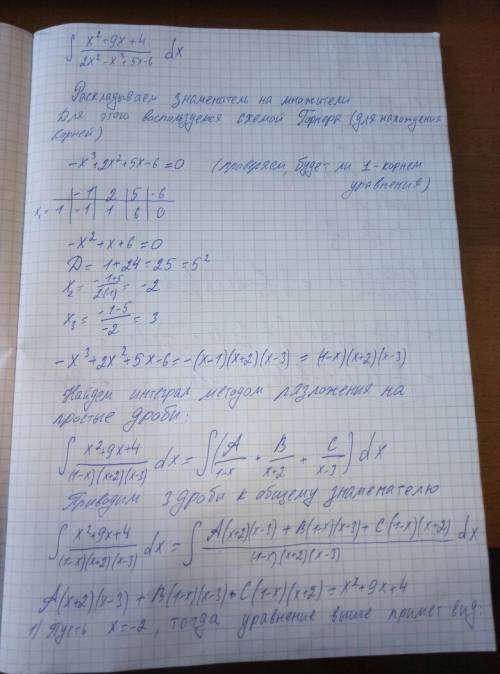 ∫ (x²+9x+4)/(2x²-x³+5x-6) dx
Раскладываем знаменатель на множители
Для этого воспользуемся схемой Горнера (для нахождения
корней)
-x³+2x²+5x-6=0 (проверяем, будет ли 1-корнем
уравнения)
| -1 | 2 | 5 | -6
x₁=1 | -1 | 1 | 6 | 0
-x²+x+6=0
D = 1+24=25=5²
x₂ = (-1+5)/(2(-1)) = -2
x₃ = (-1-5)/(-2) = 3
-x³+2x²+5x-6=-(x-1)(x+2)(x-3) = (1-x)(x+2)(x-3)
Найдём интеграл методом разложения на
простые дроби.
∫ (x²+9x+4)/((1-x)(x+2)(x-3)) dx = ∫ (A/(1-x) + B/(x+2) + C/(x-3)) dx
Приводим 3 дроби к общему знаменателю
∫ (x²+9x+4)/((1-x)(x+2)(x-3)) dx = ∫ (A(x+2)(x-3) + B(1-x)(x-3) + C(1-x)(x+2))/((1-x)(x+2)(x-3)) dx
A(x+2)(x-3) + B(1-x)(x-3) + C(1-x)(x+2) = x²+9x+4
1) Пусть x=-2, тогда уравнение выше примет вид: